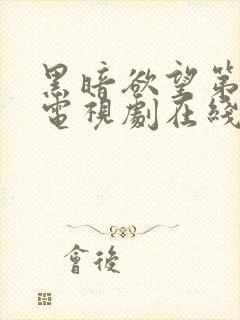 黑暗欲望第
電視劇在綫
會後